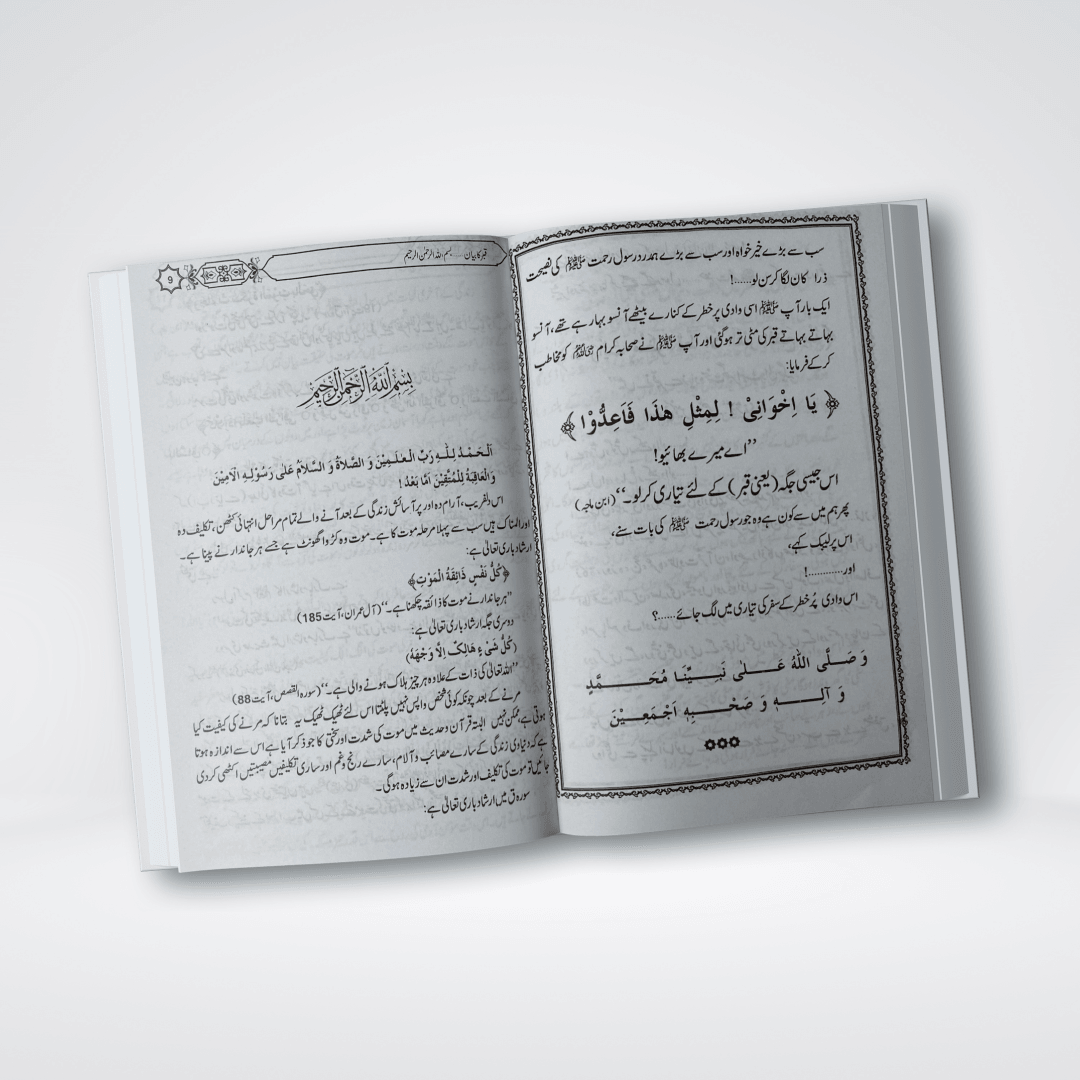 سب سے بڑے خیر خواہ اور سب سے بڑے ہمدرد رسول رحمت ﷺ کی نصیحت
ذرا کان لگا کر سن لو......!
ایک بار آپ ﷺ اسی وادی پر خطر کے کنارے بیٹھے آنسو بہا رہے تھے، آنسو
بہاتے بہاتے قبر کی مٹی تر ہو گئی اور آپ ﷺ نے صحابہ کرام کو مخاطب
کر کے فرمایا:
﴿ یَا اِخْوَانِیْ ! لِمِثْلِ ھٰذَا فَاَعِدُّوْا ﴾
’’اے میرے بھائیو!
اس جیسی جگہ (یعنی قبر) کے لئے تیاری کر لو۔‘‘ (ابن ماجہ)
پھر ہم میں سے کون ہے وہ جو رسول رحمت ﷺ کی بات سنے،
اس پر لبیک کہے،
اور............!
اس وادی پُر خطر کے سفر کی تیاری میں لگ جائے......؟
وَ صَلَّی اللّٰہُ عَلٰی نَبِیِّنَا مُحَمَّدٍ
وَ آلِہٖ وَ صَحْبِہٖ اَجْمَعِیْنَ
قبر کا بیان ..... بسم اللہ الرحمٰن الرحیم
9
بِسْمِ اللّٰہِ الرَّحْمٰنِ الرَّحِیْمِ
اَلْحَمْدُ لِلّٰہِ رَبِّ الْعٰلَمِیْنَ وَ الصَّلاَۃُ وَ السَّلاَمُ عَلٰی رَسُوْلِہِ الْاَمِیْنَ
وَالْعَاقِبَۃُ لِلْمُتَّقِیْنَ اَمَّا بَعْدُ !
اس دلفریب، آرام دہ اور پر آسائش زندگی کے بعد آنے والے تمام مراحل انتہائی کٹھن، تکلیف دہ
اور المناک ہیں سب سے پہلا مرحلہ موت کا ہے۔ موت وہ کڑوا گھونٹ ہے جسے ہر جاندار نے پینا ہے۔
ارشاد باری تعالیٰ ہے:
﴿کُلُّ نَفْسٍ ذَائِقَۃُ الْمَوْتِ﴾
’’ہر جاندار نے موت کا ذائقہ چکھنا ہے۔‘‘ (آل عمران، آیت 185)
دوسری جگہ ارشاد باری تعالیٰ ہے:
﴿کُلُّ شَیْءٍ ھَالِکٌ اِلاَّ وَجْھَہُ﴾
’’اللہ تعالیٰ کی ذات کے علاوہ ہر چیز ہلاک ہونے والی ہے۔‘‘ (سورہ القصص، آیت 88)
مرنے کے بعد چونکہ کوئی شخص واپس نہیں پلٹتا اس لئے ٹھیک ٹھیک یہ بتانا کہ مرنے کی کیفیت کیا
ہوتی ہے، ممکن نہیں البتہ قرآن و حدیث میں موت کی شدت اور سختی کا جو ذکر آیا ہے اس سے اندازہ ہوتا
ہے کہ دنیاوی زندگی کے سارے مصائب و آلام، سارے رنج و غم اور ساری تکلیفیں مصیبتیں اکٹھی کر دی
جائیں تو موت کی تکلیف اور شدت ان سے زیادہ ہو گی۔
سورہ ق میں ارشاد باری تعالیٰ ہے: